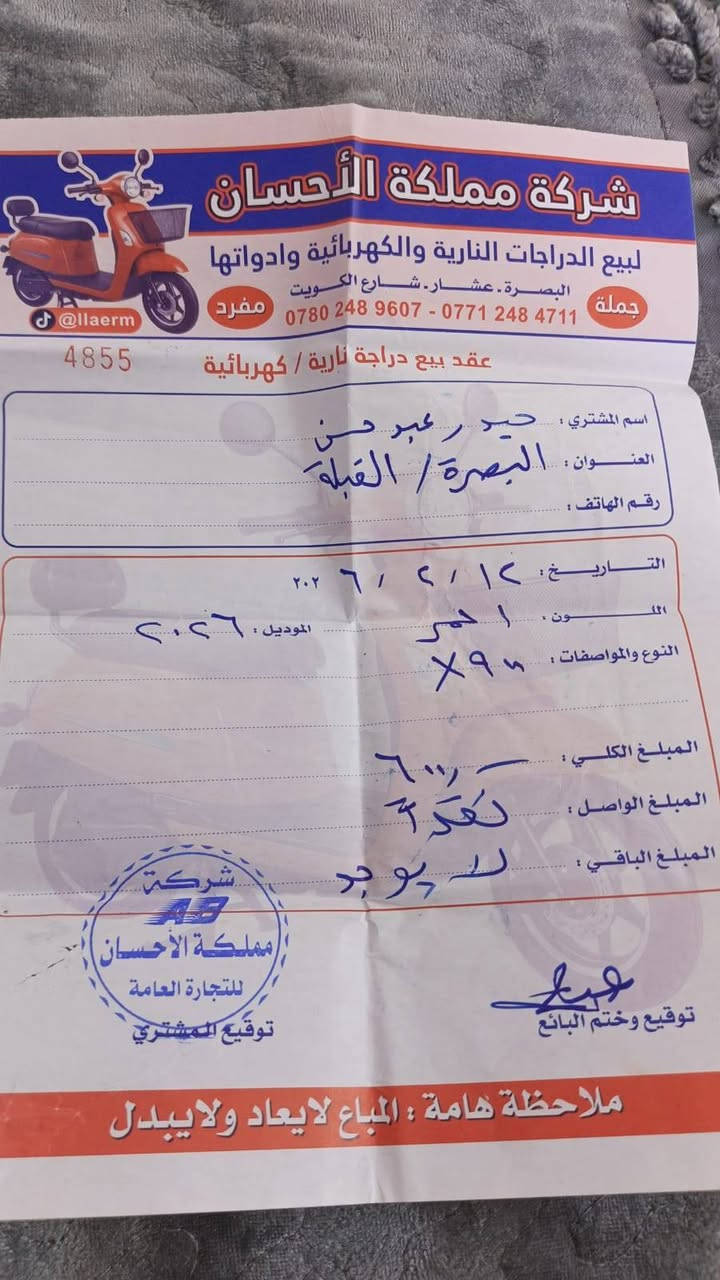 شركة مملكة الأحسان
لبيع الدراجات النارية والكهربائية وادواتها
البصرة . عشار . شارع الكويت
جملة 0780 248 9607 - 0771 248 4711 مفرد
@llaerm
عقد بيع دراجة نارية / كهربائية 4855
اسم المشتري : حيدر عبد حسن
العنوان : البصرة / القبلة
رقم الهاتف :
التاريخ : ١٢ / ٢ / ٢٠٢٦
اللون : احمر الموديل : ٢٠٢٦
النوع والمواصفات :
المبلغ الكلي :
المبلغ الواصل : نقداً
المبلغ الباقي : لا يوجد
شركة
AB
مملكة الأحسان
للتجارة العامة
توقيع وختم البائع توقيع المشتري
ملاحظة هامة : المباع لايعاد ولايبدل